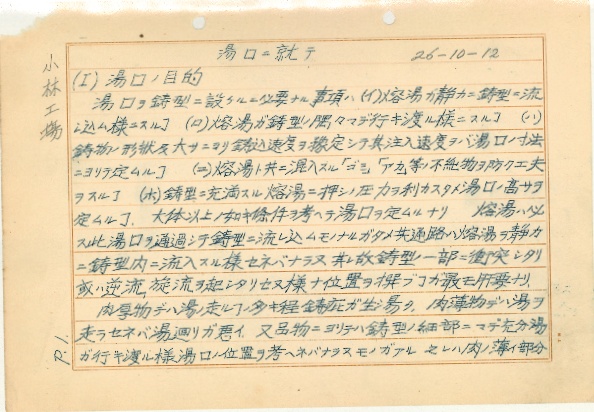 湯口ニ就テ 26-10-12
小林工場
(I) 湯口ノ目的
湯口ヲ鋳型ニ設クルニ必要ナル事項ハ (イ)熔湯ガ静カニ鋳型ニ流
レ込ム様ニスルコト (ロ)熔湯ガ鋳型ノ隅々マデ行キ渡ル様ニスルコト (ハ)
鋳物ノ形状及大サニヨリ鋳込速度ヲ穏定シテ其注入速度ヲバ湯口ノ寸法
ニヨリテ定ムルコト (ニ)熔湯ト共ニ混入スル「ゴミ」「アカ」等ノ不純物ヲ防ク工夫
ヲスルコト (ホ)鋳型ニ充満スル熔湯ニ押シノ圧力ヲ利カスタメ湯口ノ高サヲ
定ムルコト. 大体以上ノ如キ條件ヲ考ヘテ湯口ヲ定ムルナリ 熔湯ハ必
ス此湯口ヲ通過シテ鋳型ニ流レ込ムモノナルガタメ共通路ハ熔湯ヲ静カ
ニ鋳型内ニ流入スル様セネバナラヌ 其故鋳型ノ一部ニ衝突シタリ
或ハ逆流,旋流ヲ起シタリセヌ様ナ位置ヲ撰ブコトガ最モ肝要ナリ,
肉厚物デハ湯ノ走ルコト多キ程鋳疵ガ生湯ク. 肉薄物デハ湯ヲ
走ラセネバ湯廻リガ悪イ. 又品物ニヨリテハ鋳型ノ細部ニマデ充分湯
ガ行キ渡ル様湯口ノ位置ヲ考ヘネバナラヌモノガアル ソレハ肉ノ薄イ部分
P.1.